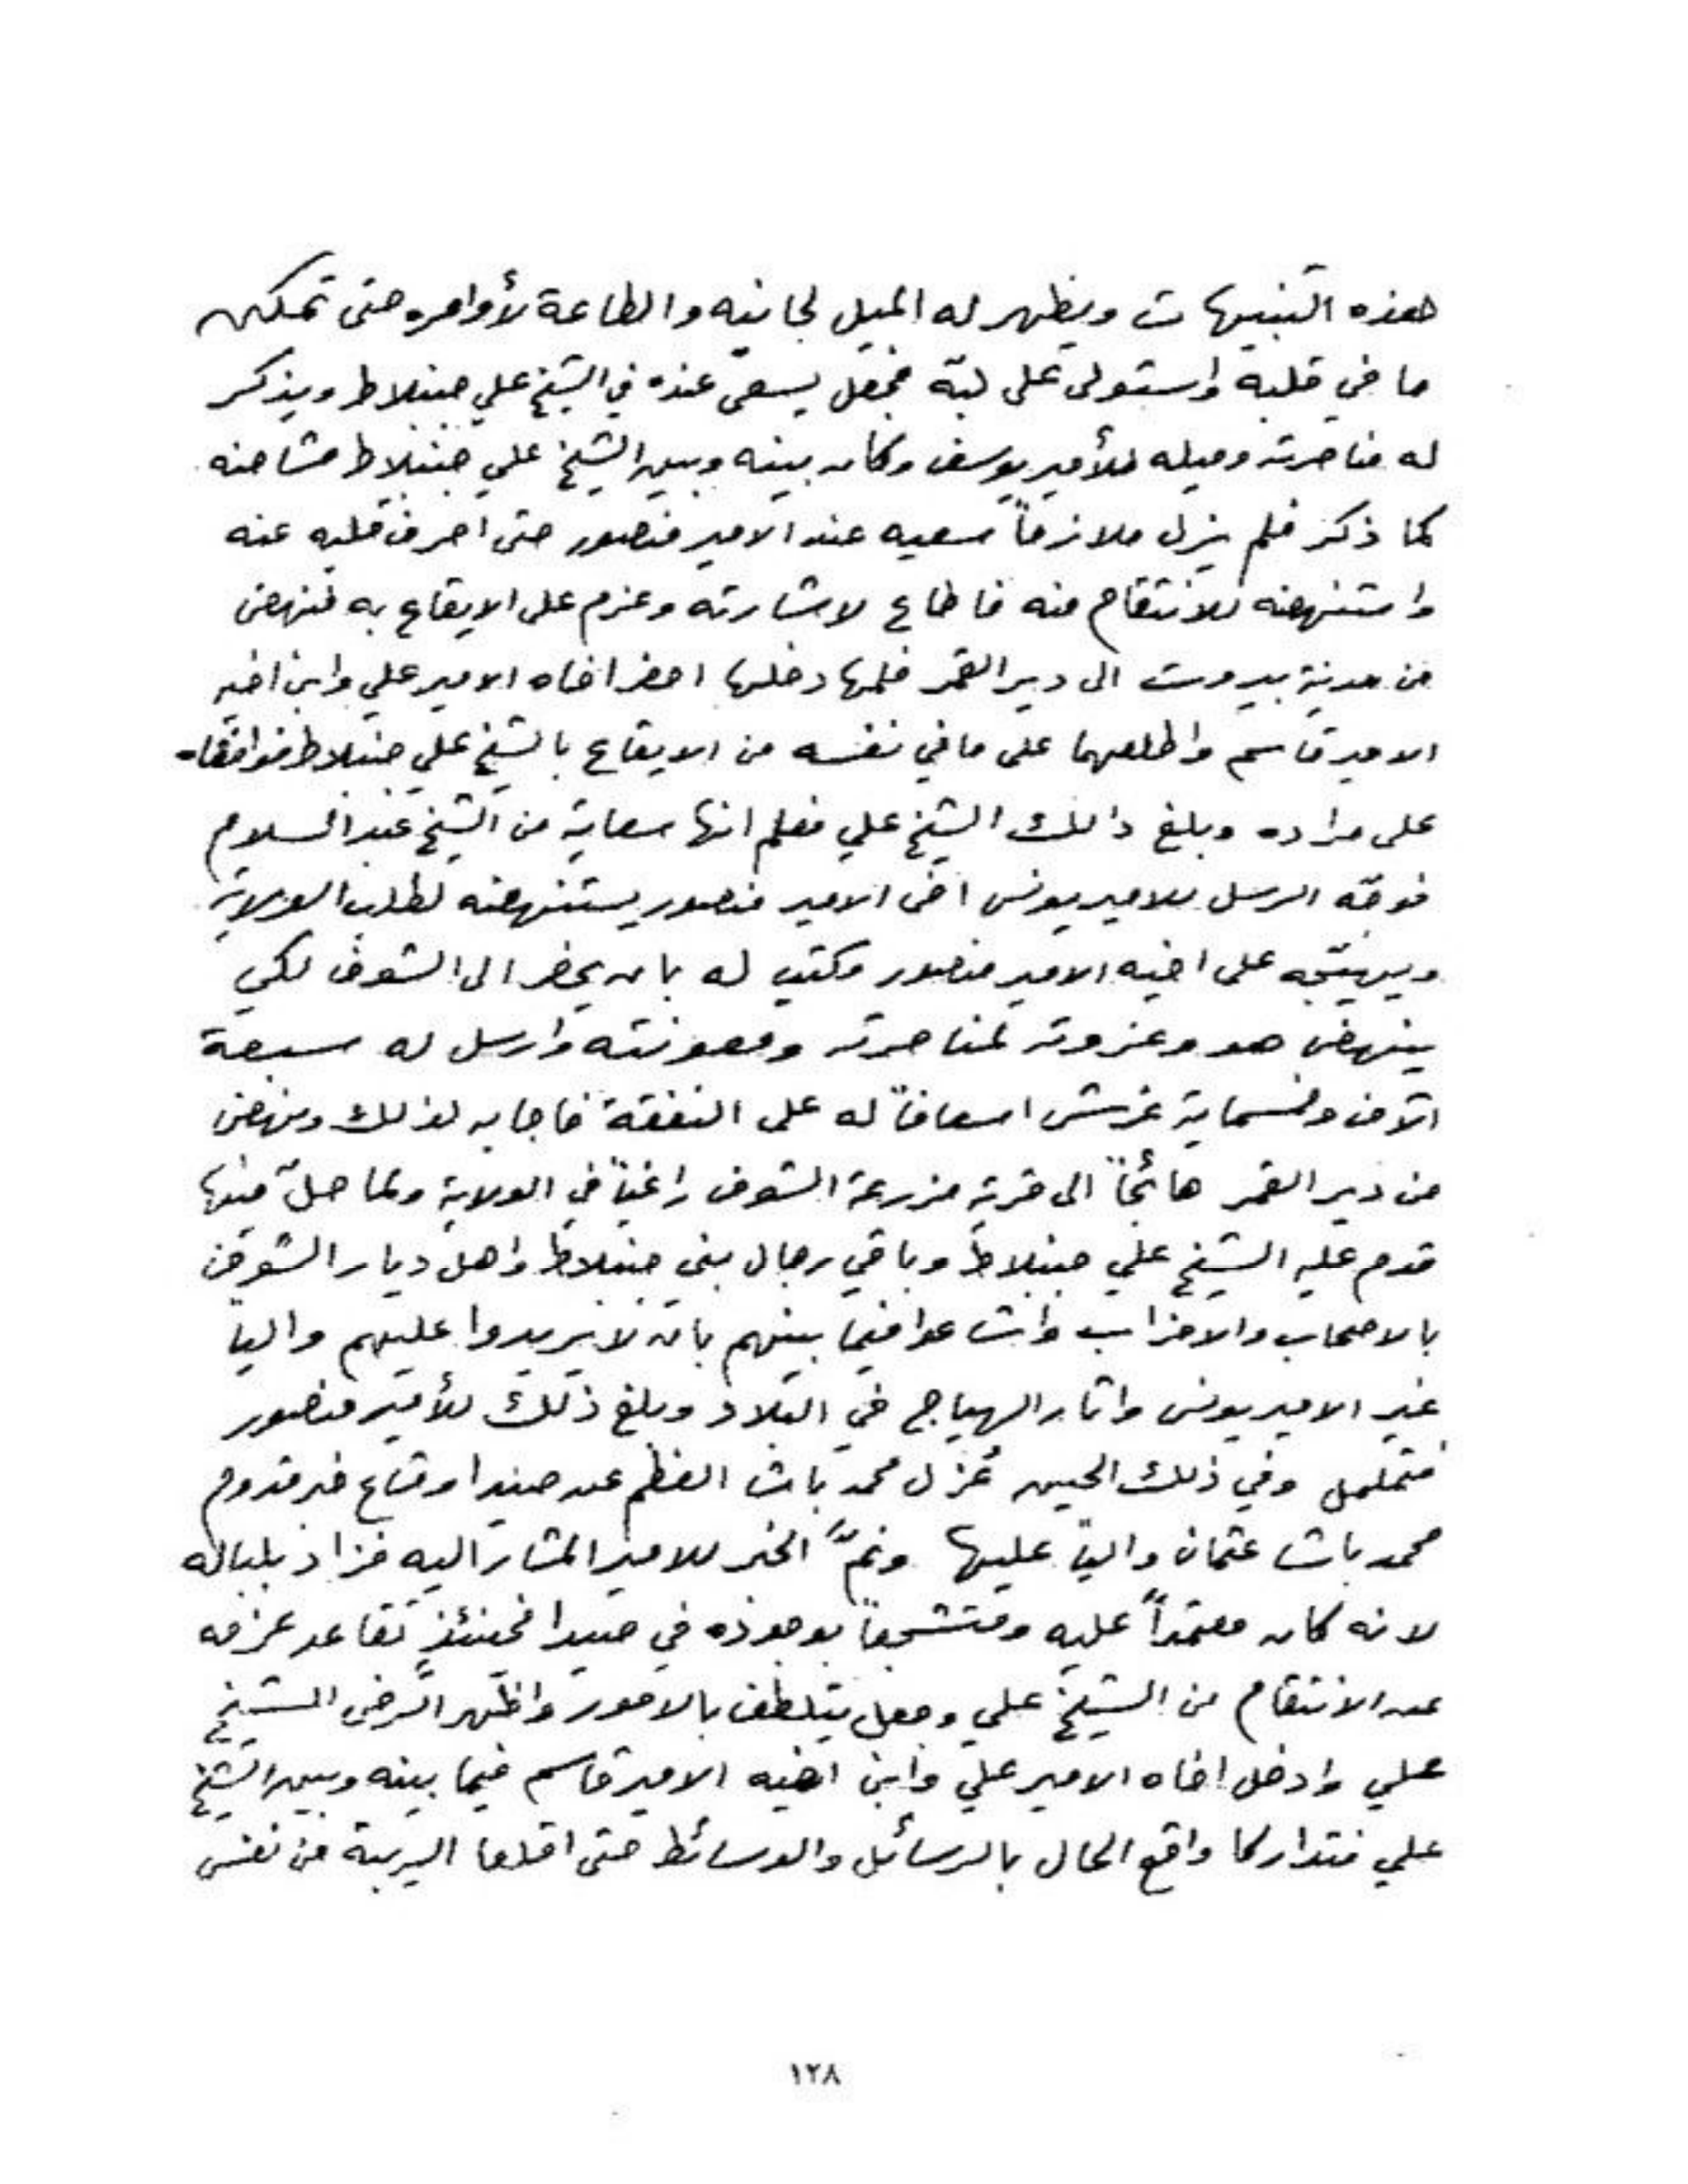 هذه التنبيهات ويظهر له الميل لجانبه والطاعة لأوامره حتى تمكن
ما في قلبه واستولى على لبّه فجعل يسعى عنده في الشيخ علي جنبلاط ويذكر
له مناصرته وميله للأمير يوسف وكان بينه وبين الشيخ علي جنبلاط مشاحنه
كما ذكر فلم يزل ملازماً سعيه عند الامير منصور حتى احرف قلبه عنه
واستنهضه للانتقام منه فاطاع لاشارته وعزم على الايقاع به فنهض
من مدينة بيروت الى دير القمر فلمها دخلها احضر اخاه الامير علي وابن اخيه
الامير قاسم واطلعهما على ما في نفسه من الايقاع بالشيخ علي جنبلاط فوافقاه
على مراده وبلغ ذالك الشيخ علي فعلم انها سعاية من الشيخ عبد السلام
فوجّه الرسل للامير يونس اخى الامير منصور يستنهضه لطلب الولاية
ويهيّجه على اخيه الامير منصور وكتب له بان يحضر الى الشوف لكي
ينهض هو وعزوته لمناصرته ومعونته وارسل له سبعة
آلاف وخمسماية غرش اسعافاً له على النفقة فاجابه لذلك ونهض
من دير القمر هائجاً الى قرية مزرعة الشوف راغباً في الولاية ولما حلّ فيها
قدم عليه الشيخ علي جنبلاط وباقي رجال بني جنبلاط واهل ديار الشوف
بالاصحاب والاحزاب واشاعوا فيما بينهم بان لا يريدوا عليهم والياً
غير الامير يونس واثار الهياج في البلاد وبلغ ذلك للأمير منصور
فتململ وفي ذلك الحين عُزل محمد باشا العظم عن صيدا وشاع خبر قدوم
محمد باشا عثمان والياً عليها ونمّ الخبر للامير المشار اليه فزاد بلباله
لانه كان معتمداً عليه ومتشجعاً بوجوده في صيدا فحينئذٍ تقاعد عزمه
عن الانتقام من الشيخ علي وجعل يتلطف بالامور واظهر الرضى الشيخ
علي وادخل اخاه الامير علي وابن اخيه الامير قاسم فيما بينه وبين الشيخ
علي فتداركا واقع الحال بالرسائل والوسائط حتى اقلعا الريبة من نفس
١٢٨